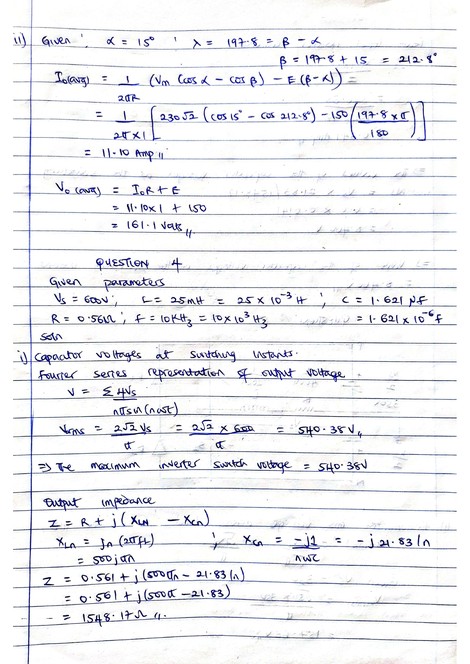 ii) Given: α = 15° ; λ = 197.8 = β - α
β = 197.8 + 15 = 212.8°
Io(avg) = 1/2πR (Vm (cos α - cos β) - E (β - α)) =
= 1/2π×1 [230√2 (cos 15° - cos 212.8°) - 150 (197.8 × π/180)]
= 11.10 Amp,,
Vo (avg) = IoR + E
= 11.10×1 + 150
= 161.1 Volts,,
QUESTION 4
Given parameters
Vs = 600V ; L = 25mH = 25 × 10⁻³ H ; C = 1.621 μF
R = 0.56Ω ; f = 10KHz = 10×10³ Hz = 1.621 × 10⁻⁶ F
Soln
i) Capacitor voltages at switching instants.
Fourier series representation of output voltage
V = Σ 4Vs
nπ sin (nωt)
Vrms = 2√2 Vs/π = 2√2 × 600/π = 540.38 V,,
⇒ The maximum inverter switch voltage = 540.38V
Output impedance
Z = R + j (XLn - Xcn)
XLn = jn (2πfL) ; Xcn = -j1/nωc = -j 21.83/n
= 500jπn
Z = 0.561 + j (500πn - 21.83/n)
= 0.561 + j (500π - 21.83)
= 1548.17Ω,,